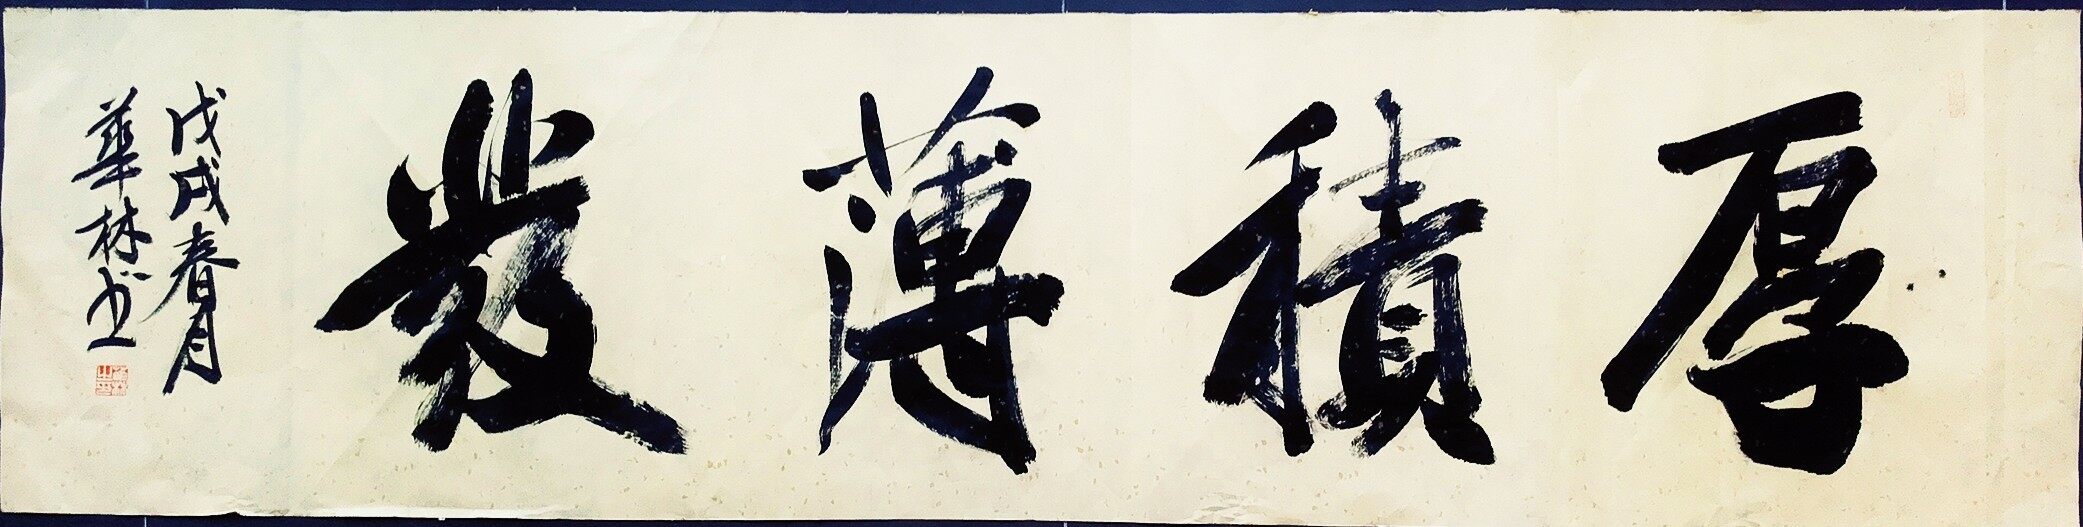 厚積薄發
戊戌春月
華林书